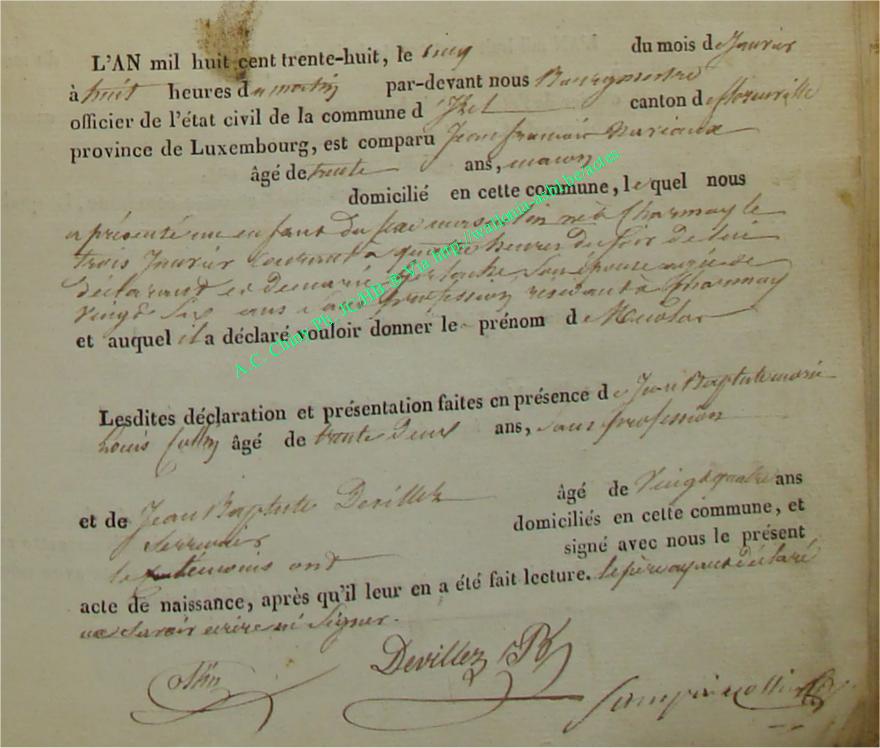 L'AN mil huit cent trente-huit, le cinq du mois de Janvier
à huit heures du matin par-devant nous Bourgmestre
officier de l'état civil de la commune d'Izel canton de florenville
province de Luxembourg, est comparu Jean francois
âgé de trente ans, macon
domicilié en cette commune, lequel nous
a présenté un enfant du sexe masculin né à Charmoy le
trois Janvier courant a quatre heures du soir de lui
declarant et de marie son épouse agée de
vingt six ans sans profession residant a Charmoy
et auquel il a déclaré vouloir donner le prénom de Nicolas
A.C. Chiny Ph. JC.HB & Via http://wallonia-asbl.be/actes
Lesdites déclaration et présentation faites en présence de Jean Baptiste marie
Louis Collin âgé de trente deux ans, sans profession
et de Jean Baptiste Devillez âgé de vingt quatre ans
Serrurier domiciliés en cette commune, et
les témoins ont signé avec nous le présent
acte de naissance, après qu'il leur en a été fait lecture. le père ayant déclaré
ne savoir ecrire ni signer.
Collin Devillez JB